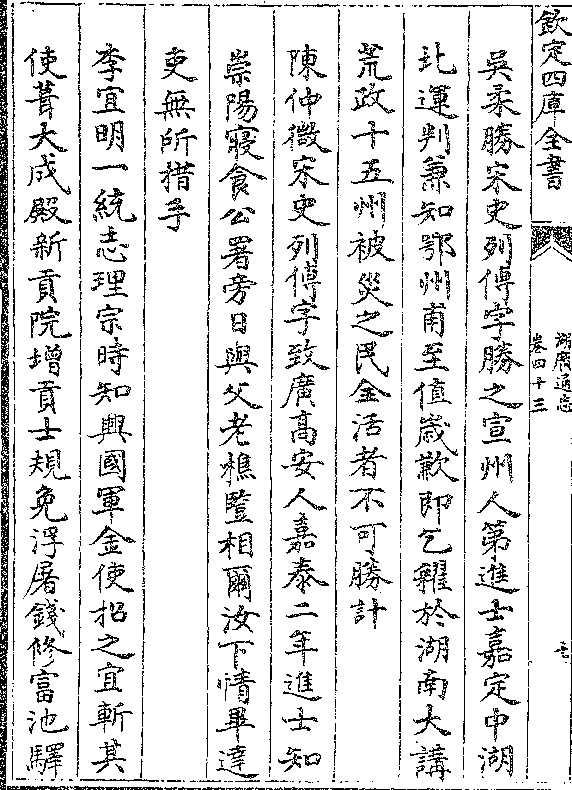 欽定四庫全書
湖廣通志
卷四十三
吳柔勝宋史列傳字勝之宣州人第進士嘉定中湖
北運判兼知鄂州甫至值歲歉即乞糴於湖南大講
荒政十五州被災之民全活者不可勝計
陳仲微宋史列傳字致廣高安人嘉泰二年進士知
崇陽寢食公署旁日與父老樵豎相爾汝下情畢達
吏無所措手
李宜明一統志理宗時知興國軍金使招之宜斬其
使葺大成殿新貢院增貢士規免浮屠錢修富池驛